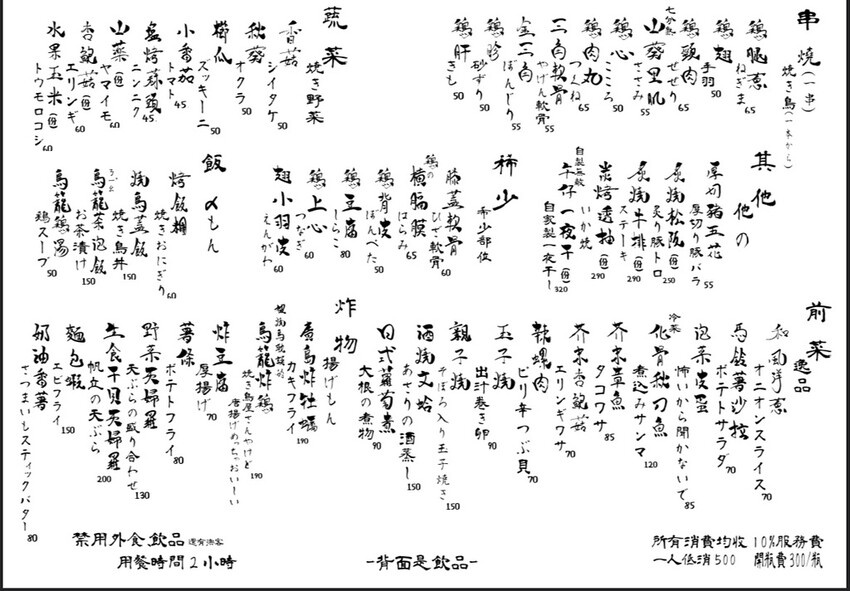 串燒(一串)
焼き鳥(一本から)
鶏腿蔥
ねぎま 65
鶏翅
手羽 50
鶏頸肉
せせり 65
七分熟
山葵里肌
ささみ 55
鶏心
こころ 50
鶏肉丸
つくね 65
三角軟骨
やげん軟骨 55
金三角
ぼんじり 55
鶏胗
砂ずり 50
鶏肝
きも 50
蔬菜
焼き野菜
香菇
シイタケ 50
秋葵
オクラ 50
櫛瓜
ズッキーニ 50
小番茄
トマト 45
塩烤蒜頭
ニンニク 45
山薬(份)
ヤマイモ 60
杏鮑菇(份)
エリンギ 60
水果玉米(份)
トウモロコシ 60
其他
他の
厚切豬五花
厚切り豚バラ 55
炙燒松阪(份)
炙り豚トロ 250
炙燒牛排(份)
ステーキ 290
炭烤透抽(份)
いか焼 290
自製無敵
午仔一夜干(份)
自家製一夜干し 320
稀少
希少部位
膝蓋軟骨
ひざ軟骨 60
鶏の
橫膈膜
はらみ 65
鶏背皮
ぼんぺた 50
鶏豆腐
しらこ 80
鶏上心
つなぎ 60
翅小羽皮
えんがわ 60
飯
〆もん
烤飯糰
焼きおにぎり 60
燒鳥蓋飯
焼き鳥丼 150
烏龍茶泡飯
お茶漬け 150
烏龍鶏湯
鶏スープ 50
前菜
逸品
和風洋蔥
オニオンスライス 70
馬鈴薯沙拉
ポテトサラダ 70
泡菜皮蛋
怖いから聞かないで 85
冷菜
化骨秋刀魚
煮込みサンマ 120
芥末章魚
タコワサ 85
芥末杏鮑菇
エリンギワサ 70
辣螺肉
ピリ辛つぶ貝 70
玉子燒
出汁巻き卵 90
親子燒
そぼろ入り玉子焼き 150
酒燒文蛤
あさりの酒蒸し 150
日式蘿蔔煮
大根の煮物 90
炸物
揚げもん
廣島炸牡蠣
カキフライ 190
烏龍炸鶏
焼き鳥屋さんやけど
唐揚げめっちゃおいしい 190
炸豆腐
厚揚げ 70
薯條
ポテトフライ 80
野菜天婦羅
天ぷらの盛り合わせ 130
生食干貝天婦羅
帆立の天ぷら 200
麵包蝦
エビフライ 150
奶油番薯
さつまいもスティックバター 80
禁用外食飲品 還有澳客
用餐時間2小時
-背面是飲品-
所有消費均收 10%服務費
一人低消500 開瓶費300/瓶